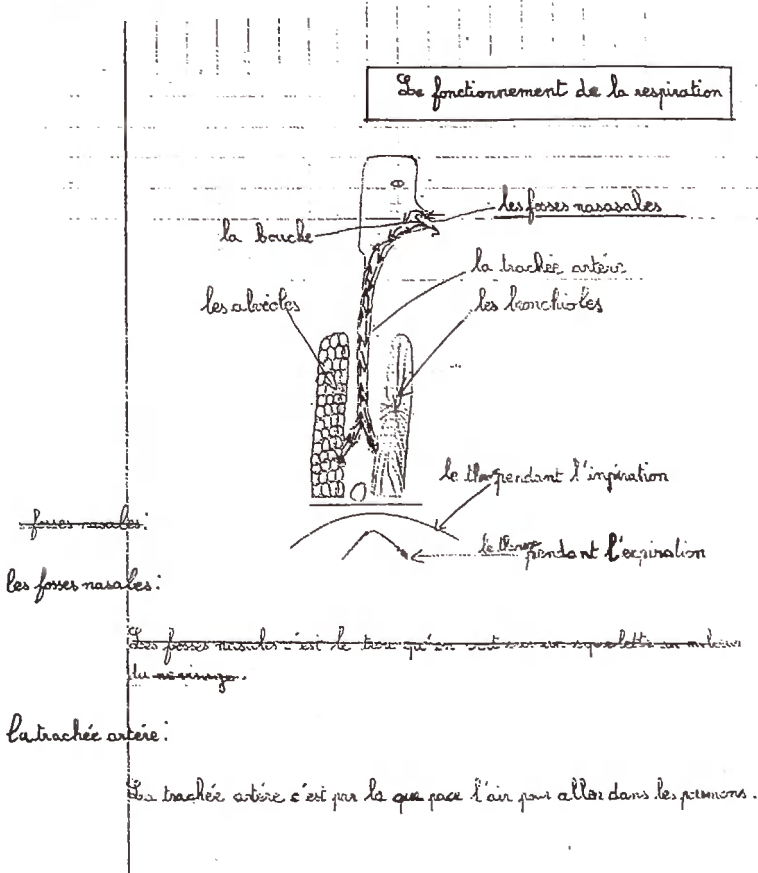 Le fonctionnement de la respiration
les fosses nasasales
la bouche
la trachée artére
les alvéoles
les bronchioles
le pendant l'inpiration
fosses nasales:
le pendant l'expiration
les fosses nasales:
Les fosses nasales c'est le trou qu'on voit sur un squelette au milieu
du
la trachée artére:
La trachée artére c'est par la que pace l'air pour aller dans les poumons.